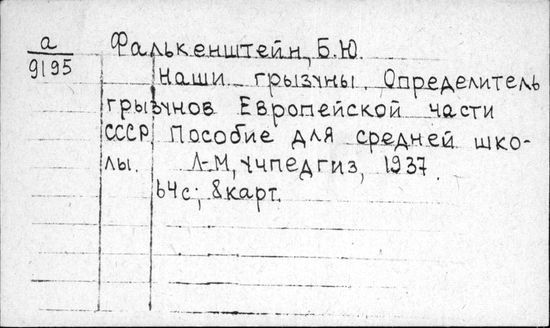 а
9195
Фалькенштейн, Б.Ю.
Наши грызуны. Определитель
грызунов Европейской части
СССР. Пособие для средней шко-
лы. Л-М, Учпедгиз, 1937.
64с; 8карт.